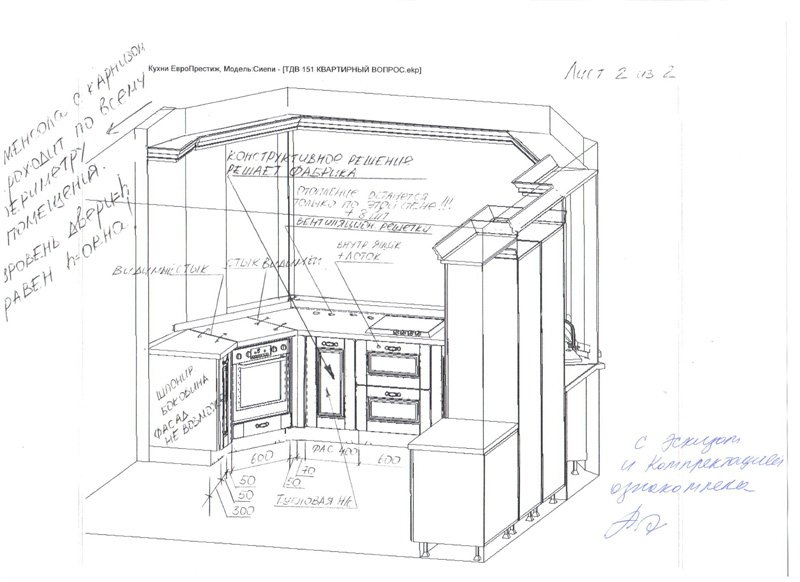 Кухни ЕвроПрестиж, Модель:Сиепи - [ТДВ 151 КВАРТИРНЫЙ ВОПРОС.екр]
Лист 2 из 2
МЕНСОЛА С КАРНИЗОМ
ПРОХОДИТ ПО ВСЕМУ
ПЕРИМЕТРУ
ПОМЕЩЕНИЯ.
УРОВЕНЬ ДВЕРИ=h
РАВЕН h=ОКНА
КОНСТРУКТИВНОЕ РЕШЕНИЕ
РЕШАЕТ ФАБРИКА
ОТОПЛЕНИЕ ОСТАНЕТСЯ
ТОЛЬКО ПО ЭТОЙ СТЕНЕ!!!
+ 8 ШТ
ВЕНТИЛЯЦИОН РЕШЕТКИ
ВНУТР ЯЩИК
+ЛОТОК
ВИДИМЫЙ СТЫК
СТЫК ВИДИМЫЙ
ШПОНИР
БОКОВИНА
ФАСАД
НЕ ВОЗМОЖ
600
ФАС 400
600
50
50
300
70
50
УГЛОВАЯ
с Эскизом
и Комплектацией
ознакомлена